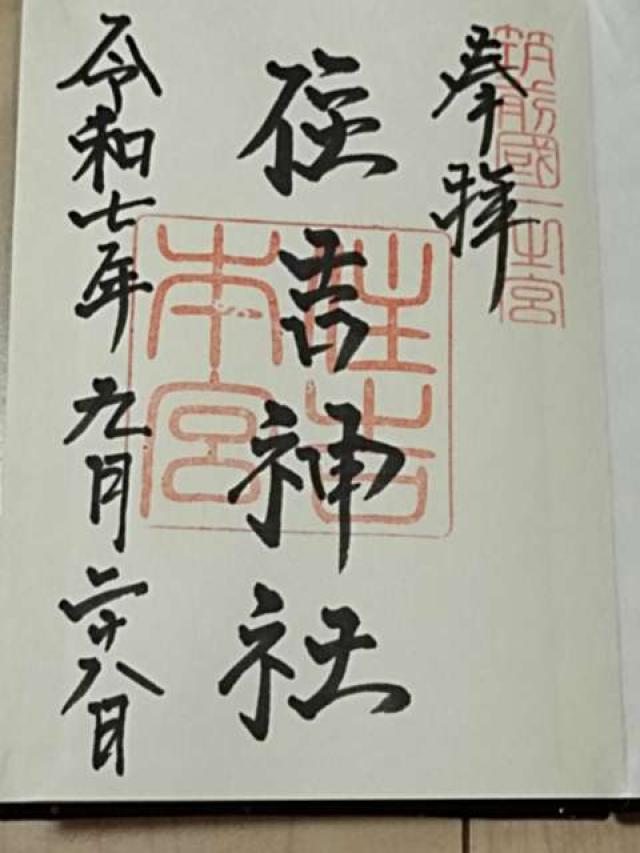 筑前國一之宮
奉拝
住吉神社
住吉本宮
令和七年九月二十八日